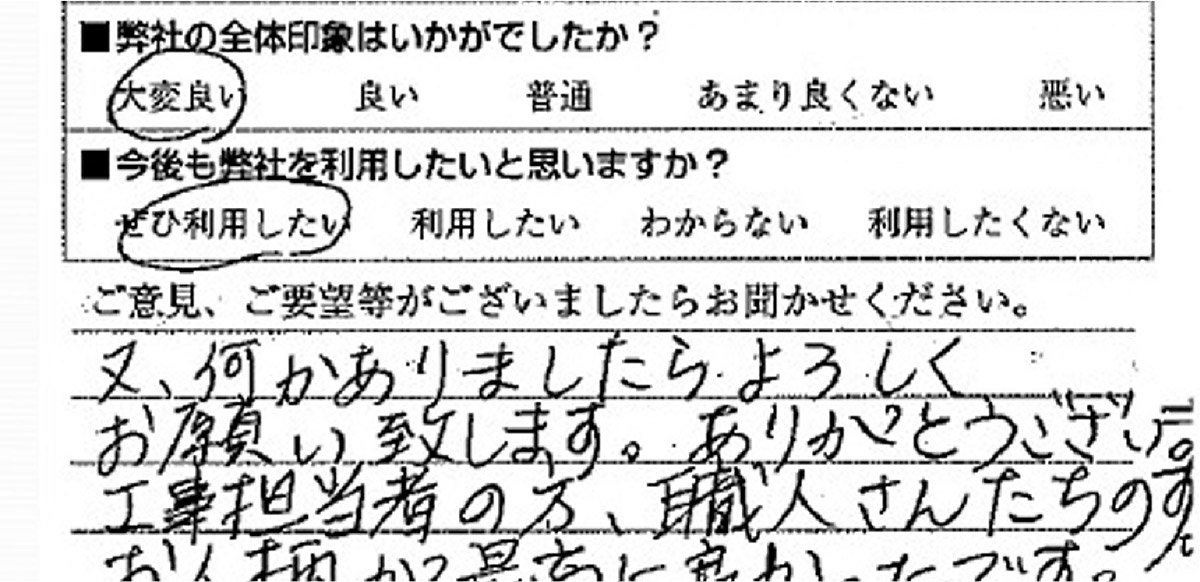 ■弊社の全体印象はいかがでしたか？
大変良い 良い 普通 あまり良くない 悪い
■今後も弊社を利用したいと思いますか？
ぜひ利用したい 利用したい わからない 利用したくない
ご意見、ご要望等がございましたらお聞かせください。
又、何かありましたらよろしく
お願い致します。ありがとうござい
工事担当者の方、職人さんたちの
お人柄が最高に良かったです。